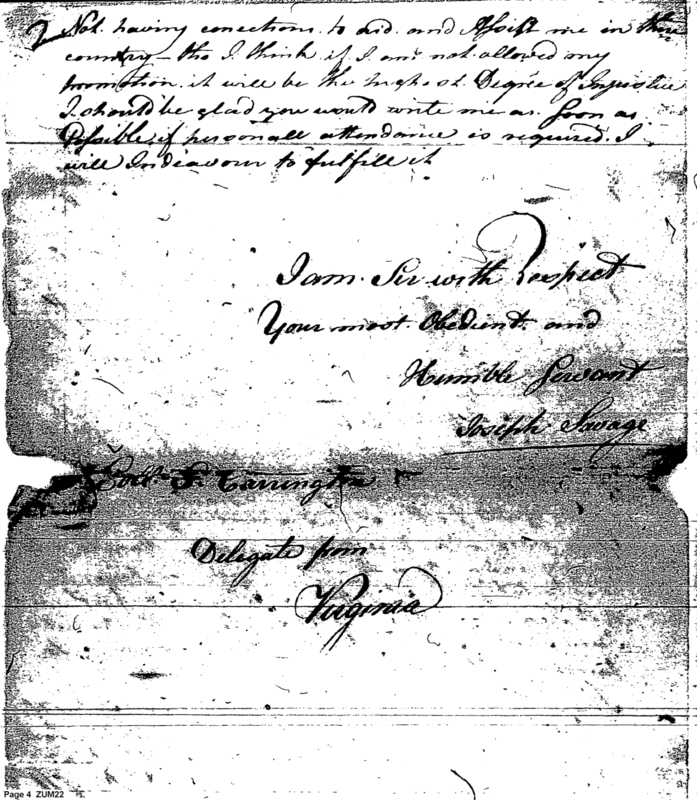 Not having conections to aid and Assist me in this
country – tho I think if I am not allowed my
promotion it will be the highest Degree of Injustice
I should be glad you would write me as Soon as
Possible, if personall attendance is required. I
will Indeavour to fulfill it
I am Sir with Respect
Your most Obedient and
Humble Servant
Joseph Savage
Carrington
Delegate from
Virginia
Page 4 ZUM22